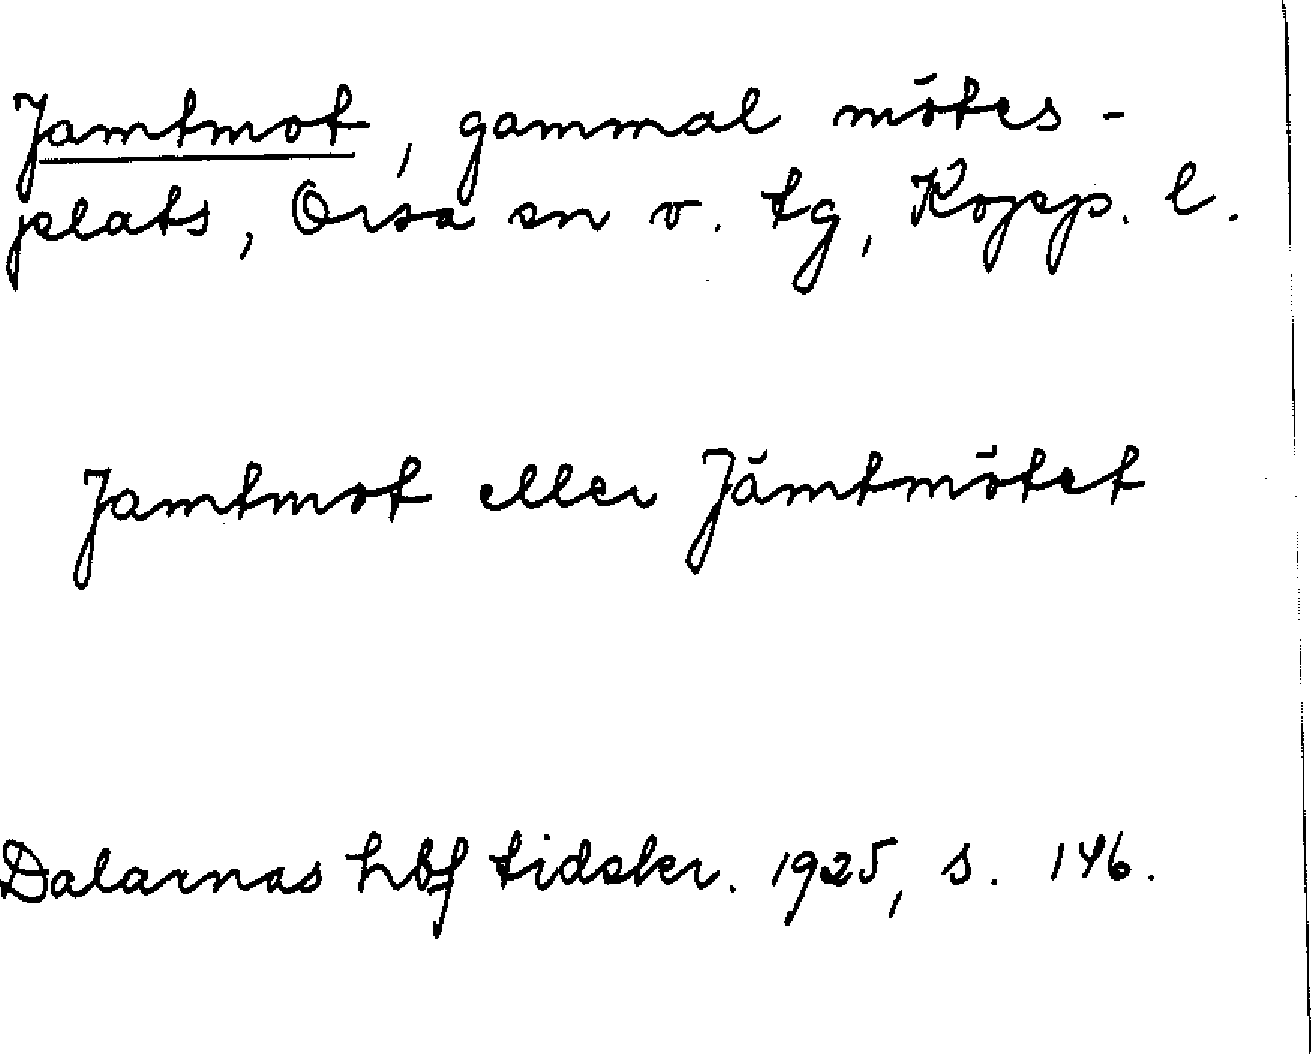 Jamtmot, gammal mötes-
plats, Orsa sn o. tg, Kopp. l.
Jamtmot eller Jämtmötet
Dalarnas hbf tidskr. 1925, s. 146.